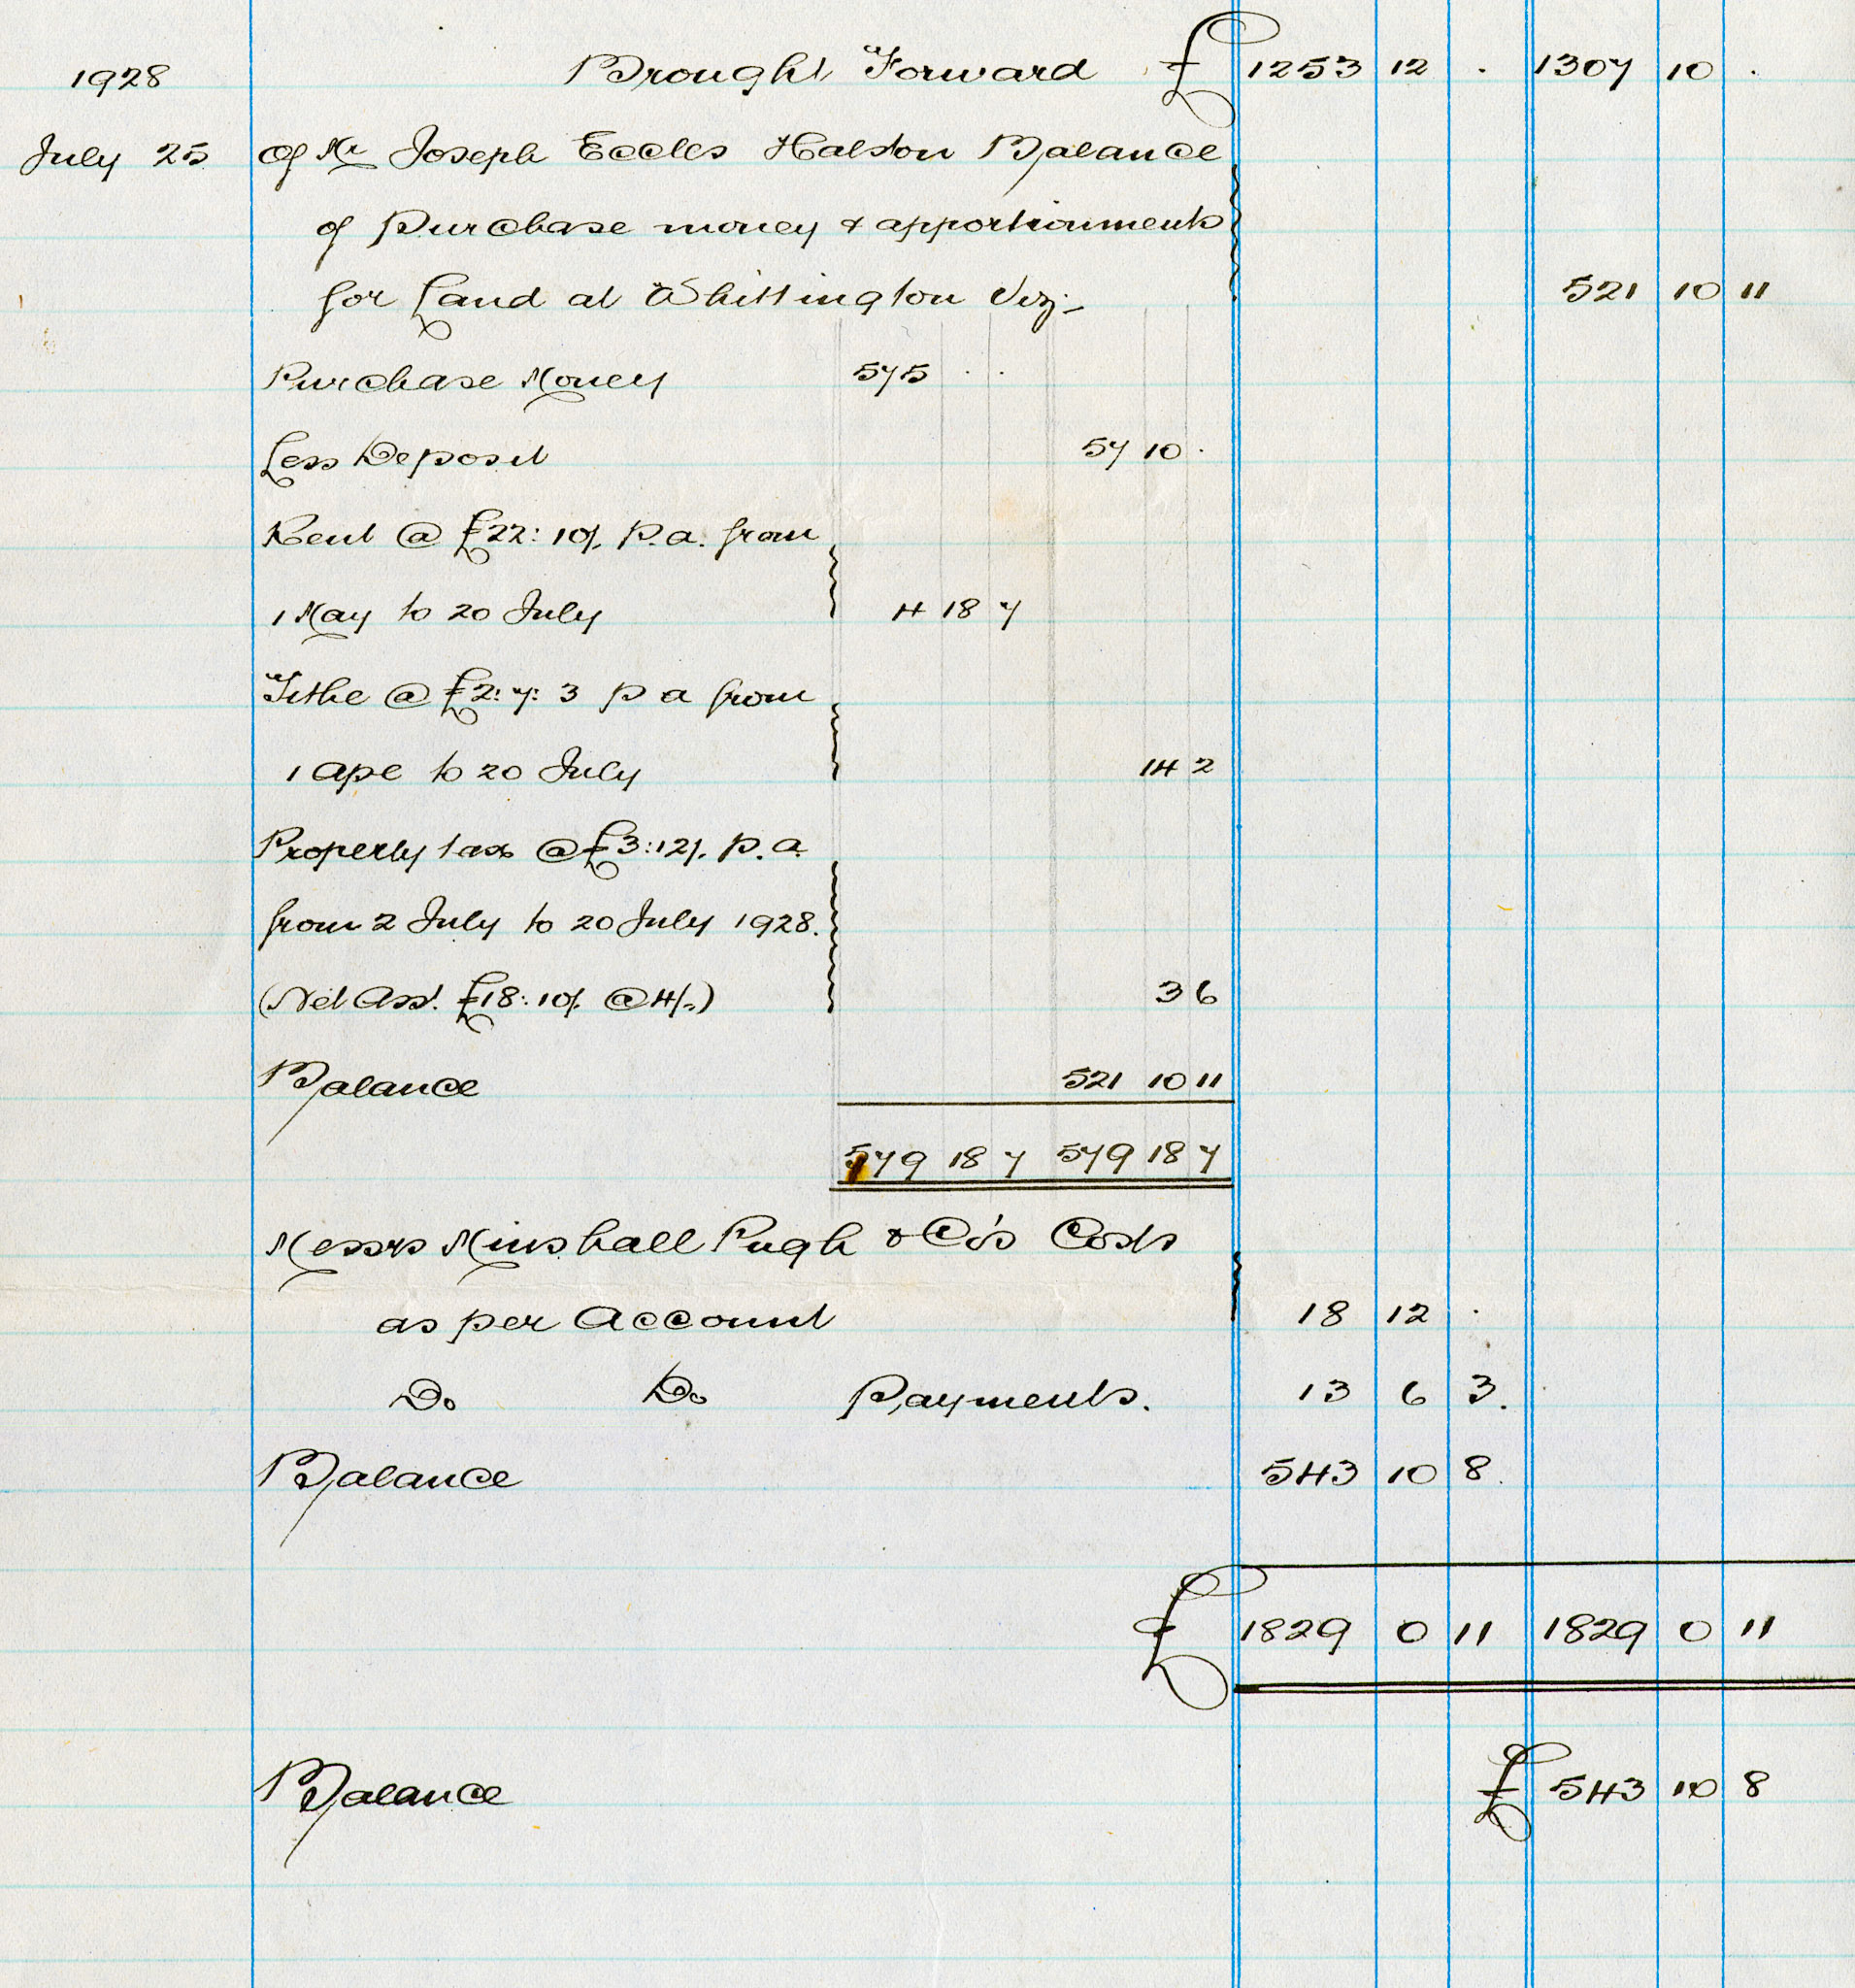 Brought Forward £ 1253 12 . 1307 10 .
1928
July 25 Of Mr Joseph Eccles Halston Balance
of purchase money & apportionments
for Land at Whittington Viz:- 521 10 11
Purchase Money 575 . .
Less Deposit 57 10 .
Rent @ £22:10/. P.a. from
1 May to 20 July 4 18 7
Tithe @ £2:7:3 p a from
1 Apl to 20 July 14 2
Property tax @ £3:12/. p.a.
from 2 July to 20 July 1928.
(Net Ass. £18:10/. @ 4/-) 3 6
Balance 521 10 11
579 18 7 579 18 7
Messrs Minshall Pugh & Co's Costs
as per Account 18 12 .
Do Do Payments. 13 6 3.
Balance 543 10 8.
£ 1829 0 11 1829 0 11
Balance £ 543 10 8